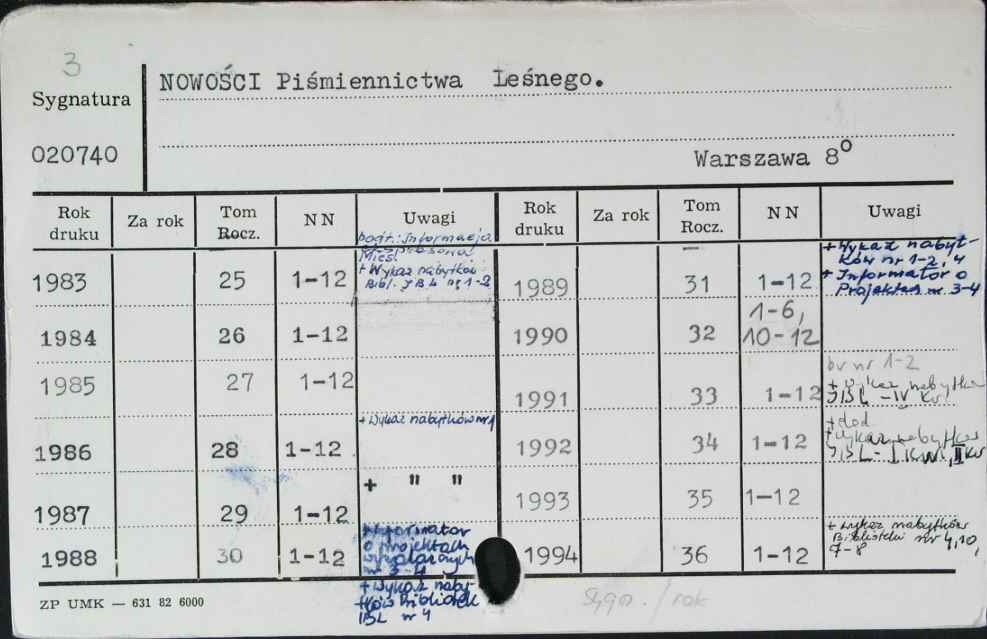 3
Sygnatura
020740
NOWOŚCI Piśmiennictwa Leśnego.
Warszawa 8°
Rok druku Za rok Tom Rocz. NN Uwagi Rok druku Za rok Tom Rocz. NN Uwagi
1983 25 1-12
+ Wykaz nabytków
Bibl. IBL nr 1-2
1984 26 1-12
1985 27 1-12
1986 28 1-12 + Wykaz nabytków nr 1
1987 29 1-12 + " "
1988 30 1-12
+ Informator
o projektach
nr 3-4
+ Wykaz naby-
tków Bibliotek
IBL nr 4
1989 31 1-12
+ Wykaz nabyt-
ków nr 1-2, 4
+ Informator o
Projektach nr 3-4
1990 32 1-6,
10-12
1991 33 1-12
bv nr 1-2
+ wykaz nabytków
IBL - IV kw
1992 34 1-12
+ dod
+ wykaz nabytków
IBL - I kw, II kw
1993 35 1-12
1994 36 1-12
+ wykaz nabytków
Biblioteki nr 4,10,
7-8
ZP UMK — 631 82 6000
Sygn. / rok